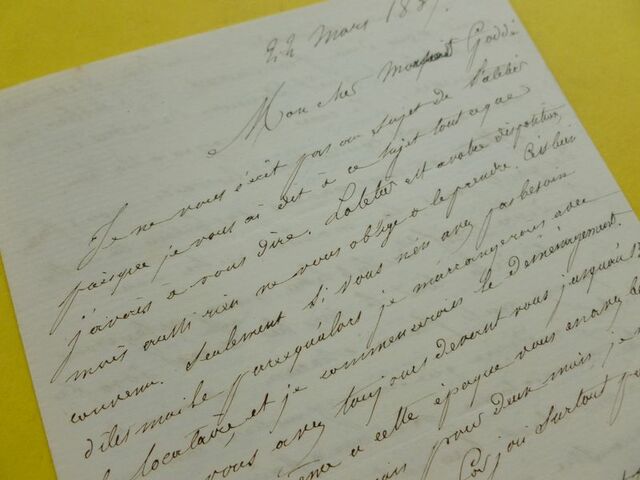 Mars 18
Mon cher Goddé
Je ne vous écrit pas au sujet de l'atelier
puisque je vous ai dit à ce sujet tout ce que
j'avais à vous dire. L'atelier est a votre disposition,
mais aussi rien ne vous oblige a le prendre. C'est bien
convenu. Seulement si vous n'en avez pas besoin
dites moi le parcequ'alors je m'arrangerois avec
locataire et je commencerois le déménagement.
vous avez toujours devant vous jusqu'au
a cette époque vous en avez
pour deux mois, je
surtout